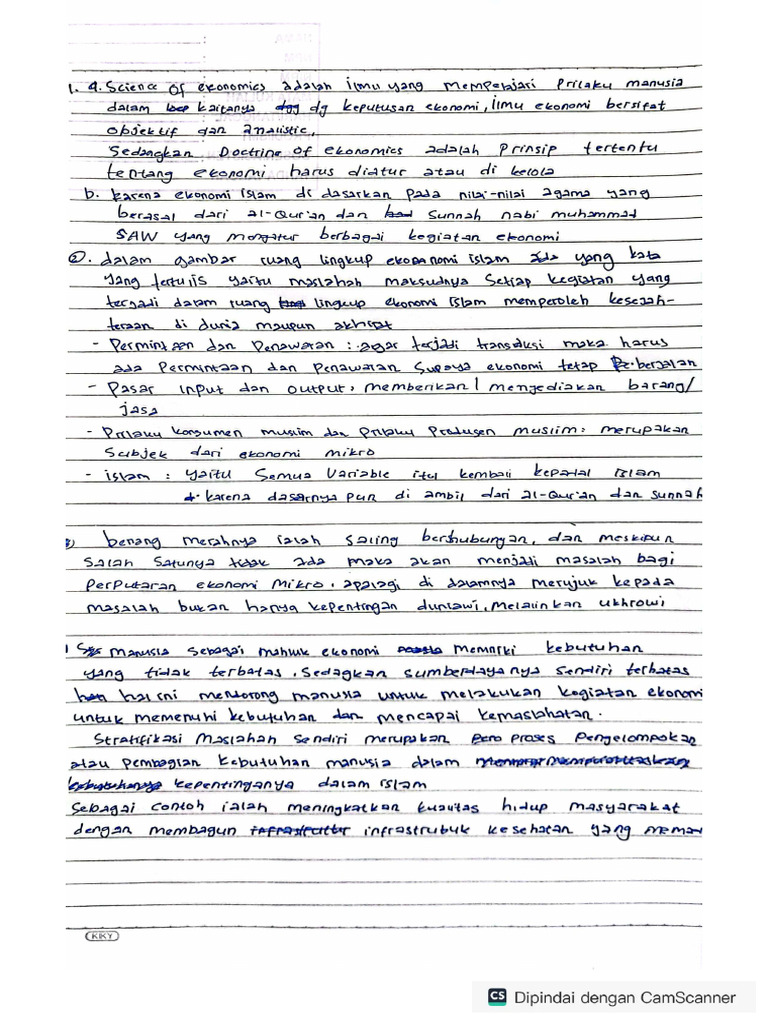 1. a. Science of ekonomics adalah ilmu yang mempelajari prilaku manusia
dalam kaitanya dg keputusan ekonomi, ilmu ekonomi bersifat
objektif dan analistic,
Sedangkan Doctrine of ekonomics adalah prinsip tertentu
tentang ekonomi harus diatur atau di kelola
b. karena ekonomi islam di dasarkan pada nilai-nilai agama yang
berasal dari al-Qur'an dan Sunnah nabi muhammad
SAW yang mengatur berbagai kegiatan ekonomi
2. dalam gambar ruang lingkup ekonomi islam ada yang kata
yang tertulis yaitu maslahah maksudnya setiap kegiatan yang
terjadi dalam ruang lingkup ekonomi islam memperoleh kesejah-
teraan di dunia maupun akhirat
- Permintaan dan Penawaran : agar terjadi transaksi maka harus
ada Permintaan dan Penawaran supaya ekonomi tetap berjalan
- Pasar input dan output, memberikan / menyediakan barang/
jasa
- Prilaku konsumen muslim dan prilaku Produsen muslim : merupakan
Subjek dari ekonomi mikro
- islam : yaitu semua variable itu kembali kepada islam
karena dasarnya pun di ambil dari al-Qur'an dan sunnah
benang merahnya ialah saling berhubungan, dan meskipun
salah satunya tidak ada maka akan menjadi masalah bagi
perputaran ekonomi mikro, apalagi di dalamnya merujuk kepada
maslah bukan hanya kepentingan duniawi, melainkan ukhrowi
manusia sebagai mahluk ekonomi memiliki kebutuhan
yang tidak terbatas, sedagkan sumberdayanya sendiri terbatas
hal ini mendorong manusia untuk melakukan kegiatan ekonomi
untuk memenuhi kebutuhan dan mencapai kemaslahatan.
Stratifikasi Maslahah sendiri merupakan proses Pengelompokan
atau pembagian kebutuhan manusia dalam
kepentinganya dalam islam
Sebagai contoh ialah meningkatkan kualitas hidup masyarakat
dengan membagun infrastrubuk kesehatan yang
KKY
CS Dipindai dengan CamScanner